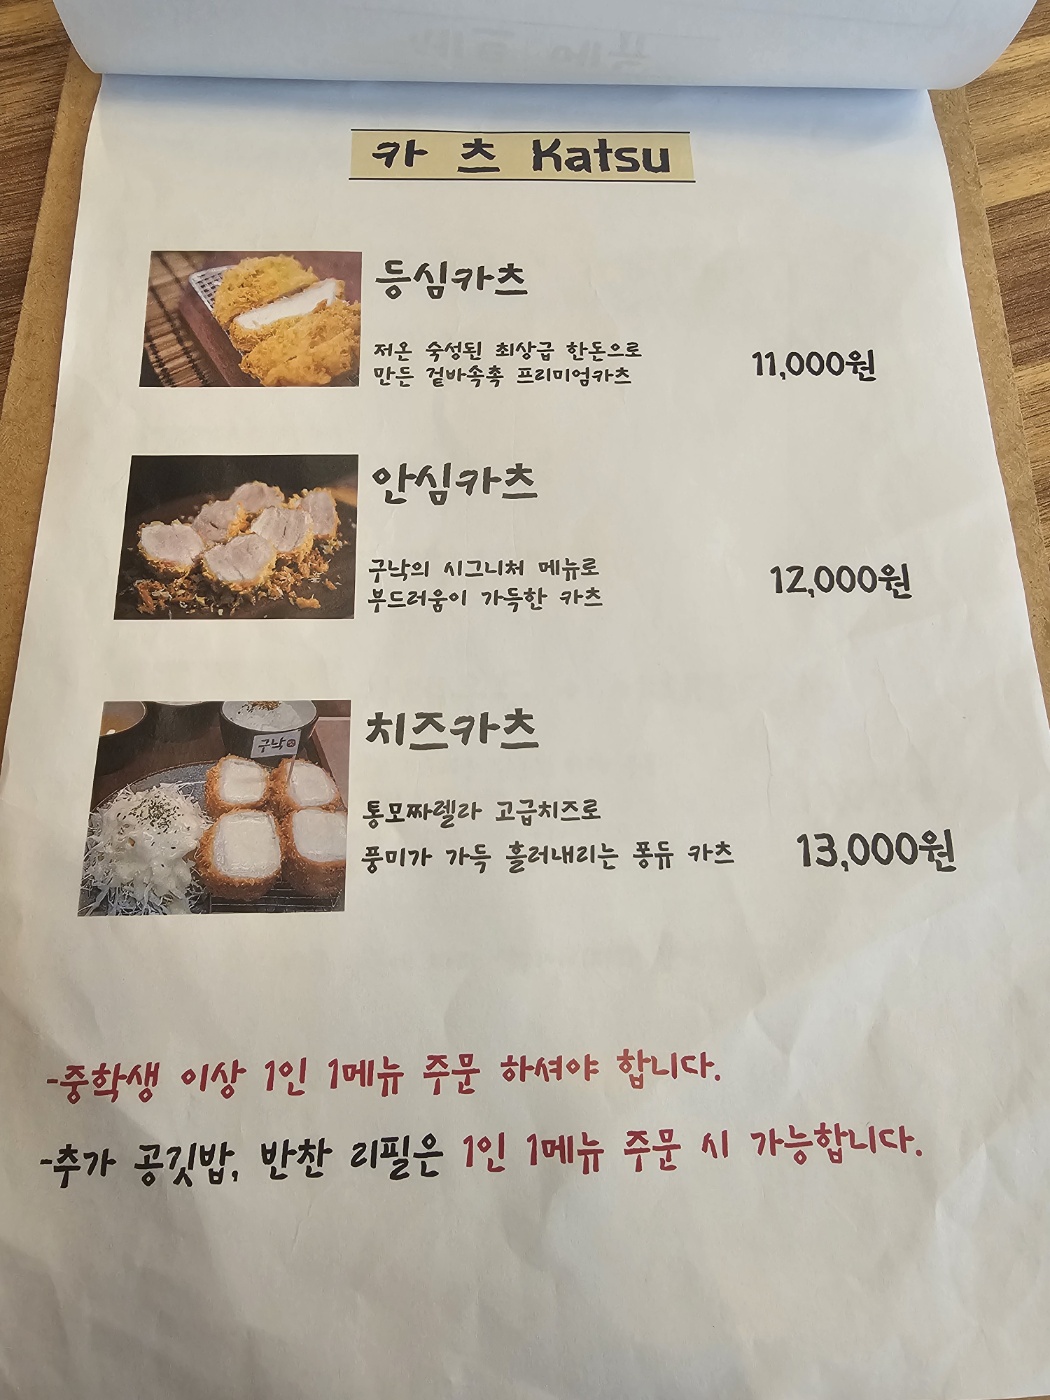 카 츠 Katsu
등심카츠
저온 숙성된 최상급 한돈으로
만든 겉바속촉 프리미엄카츠
11,000원
안심카츠
구낙의 시그니처 메뉴로
부드러움이 가득한 카츠
12,000원
구낙
치즈카츠
통모짜렐라 고급치즈로
풍미가 가득 흘러내리는 퐁듀 카츠
13,000원
-중학생 이상 1인 1메뉴 주문 하셔야 합니다.
-추가 공깃밥, 반찬 리필은 1인 1메뉴 주문 시 가능합니다.